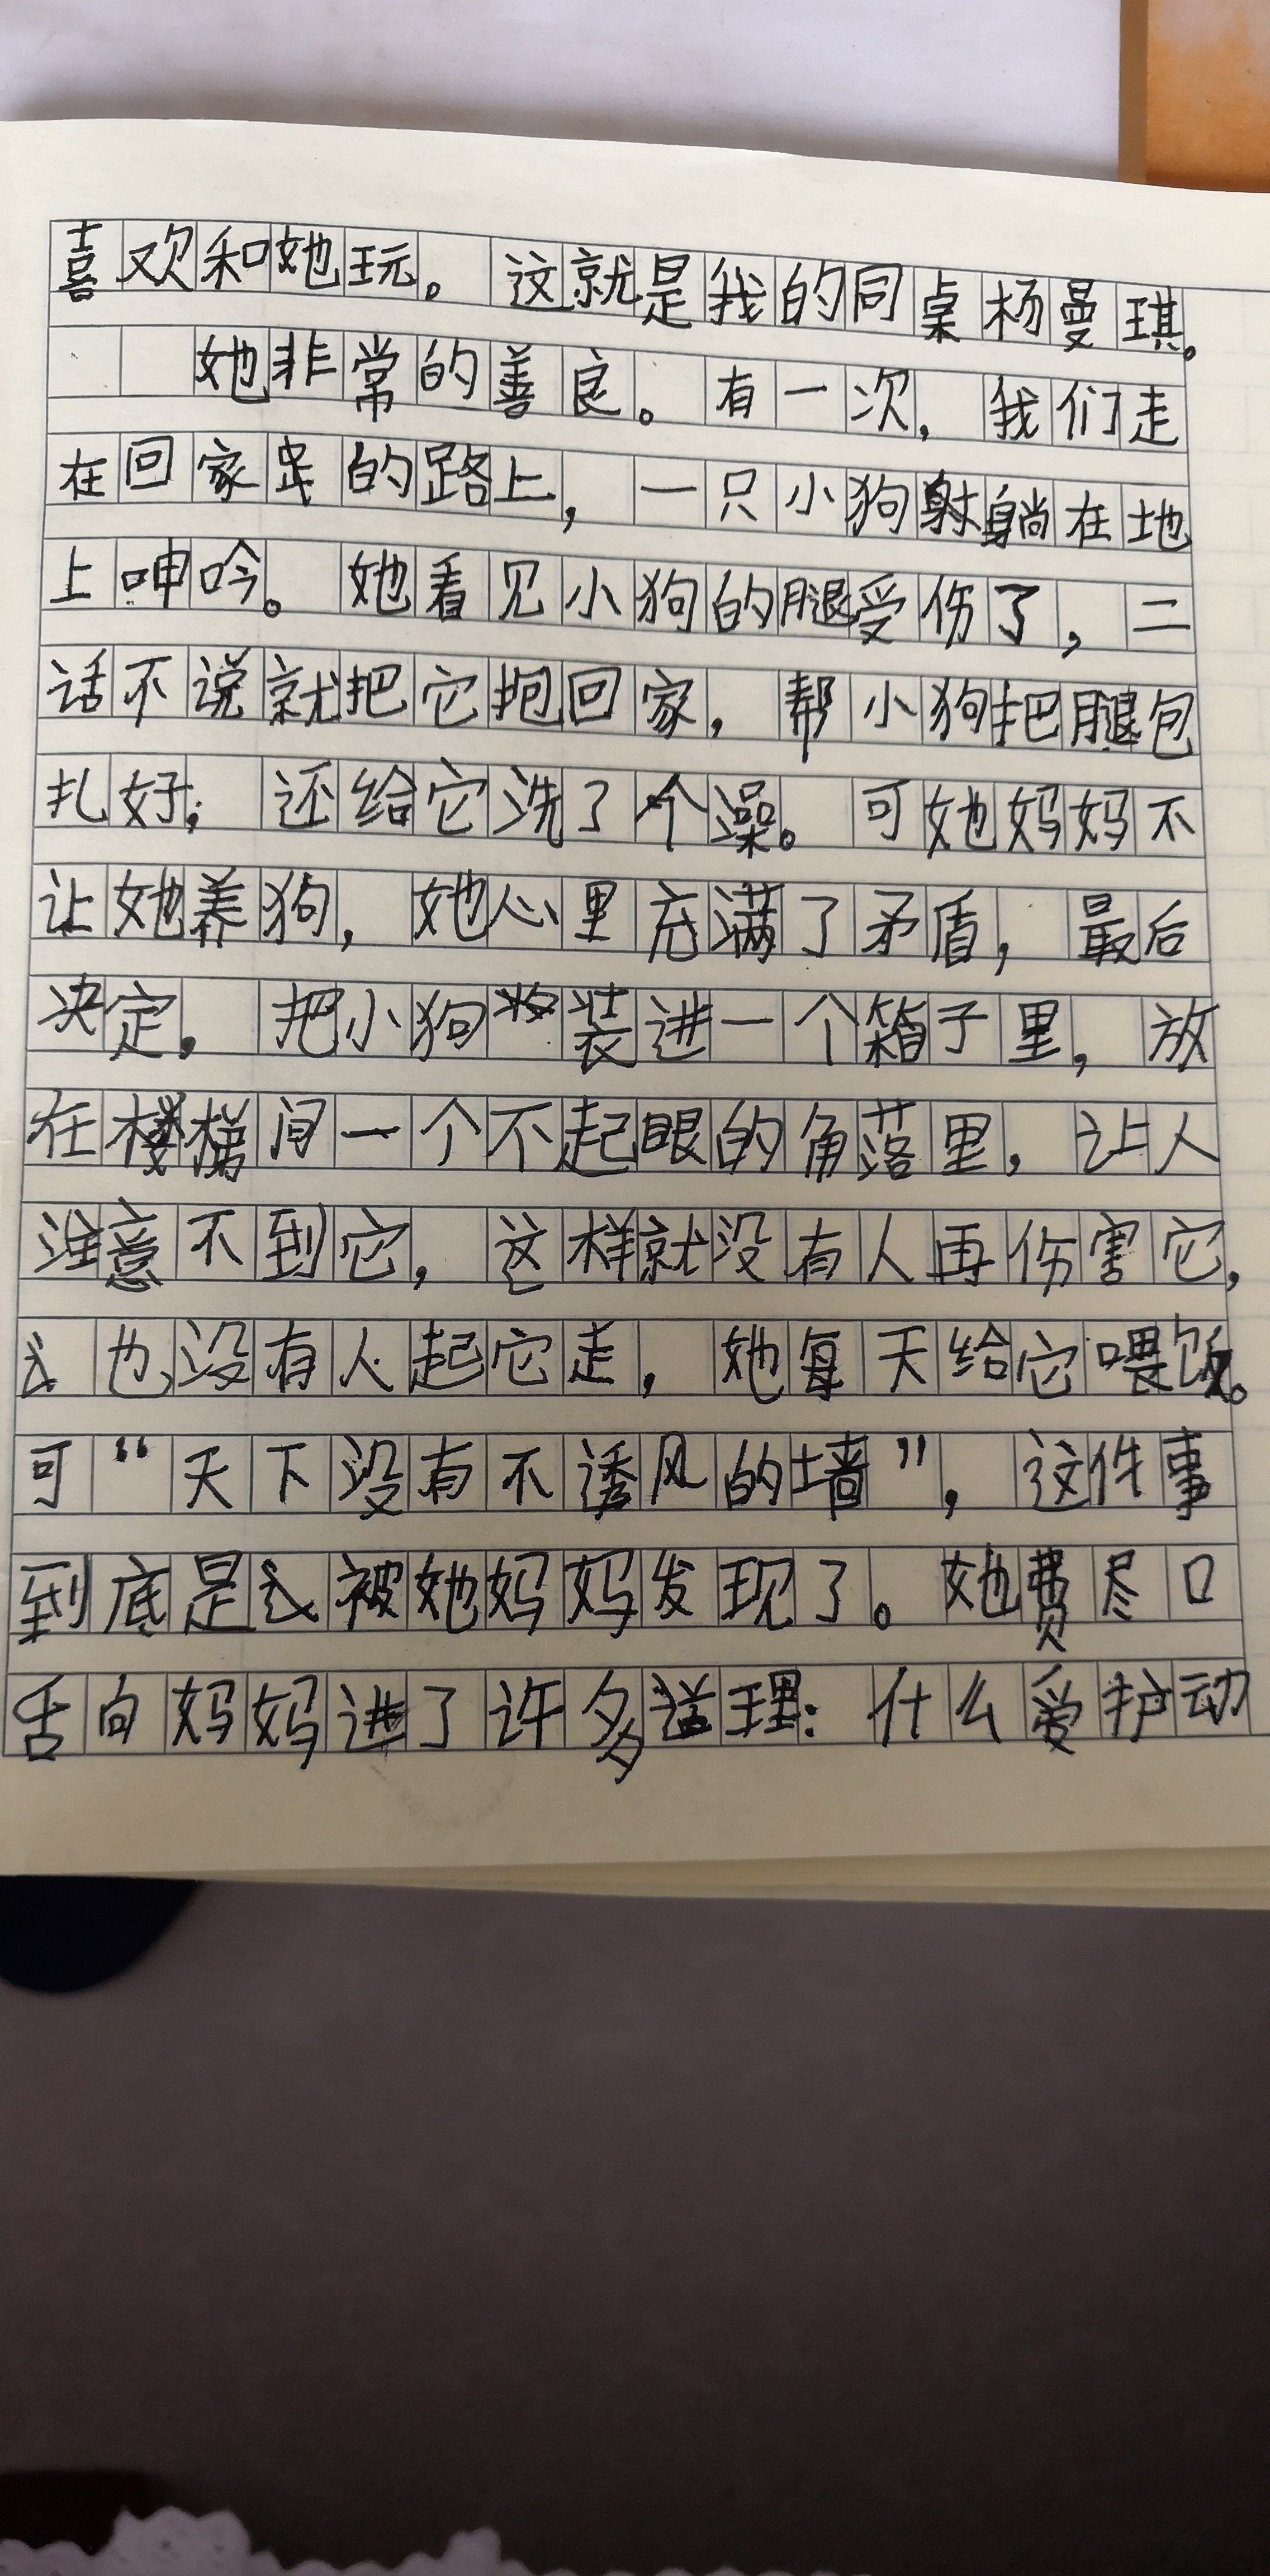 喜欢和她玩。这就是我的同桌杨曼琪。
她非常的善良。有一次，我们走
在回家的路上，一只小狗躺在地
上呻吟。她看见小狗的腿受伤了，二
话不说就把它抱回家，帮小狗把腿包
扎好；还给它洗了个澡。可她妈妈不
让她养狗，她心里充满了矛盾，最后
决定，把小狗装进一个箱子里，放
在楼梯间一个不起眼的角落里，让人
注意不到它，这样就没有人再伤害它，
也没有人起它走，她每天给它喂饭。
可“天下没有不透风的墙”，这件事
到底是被她妈妈发现了。她费尽口
舌向妈妈进了许多道理：什么爱护动